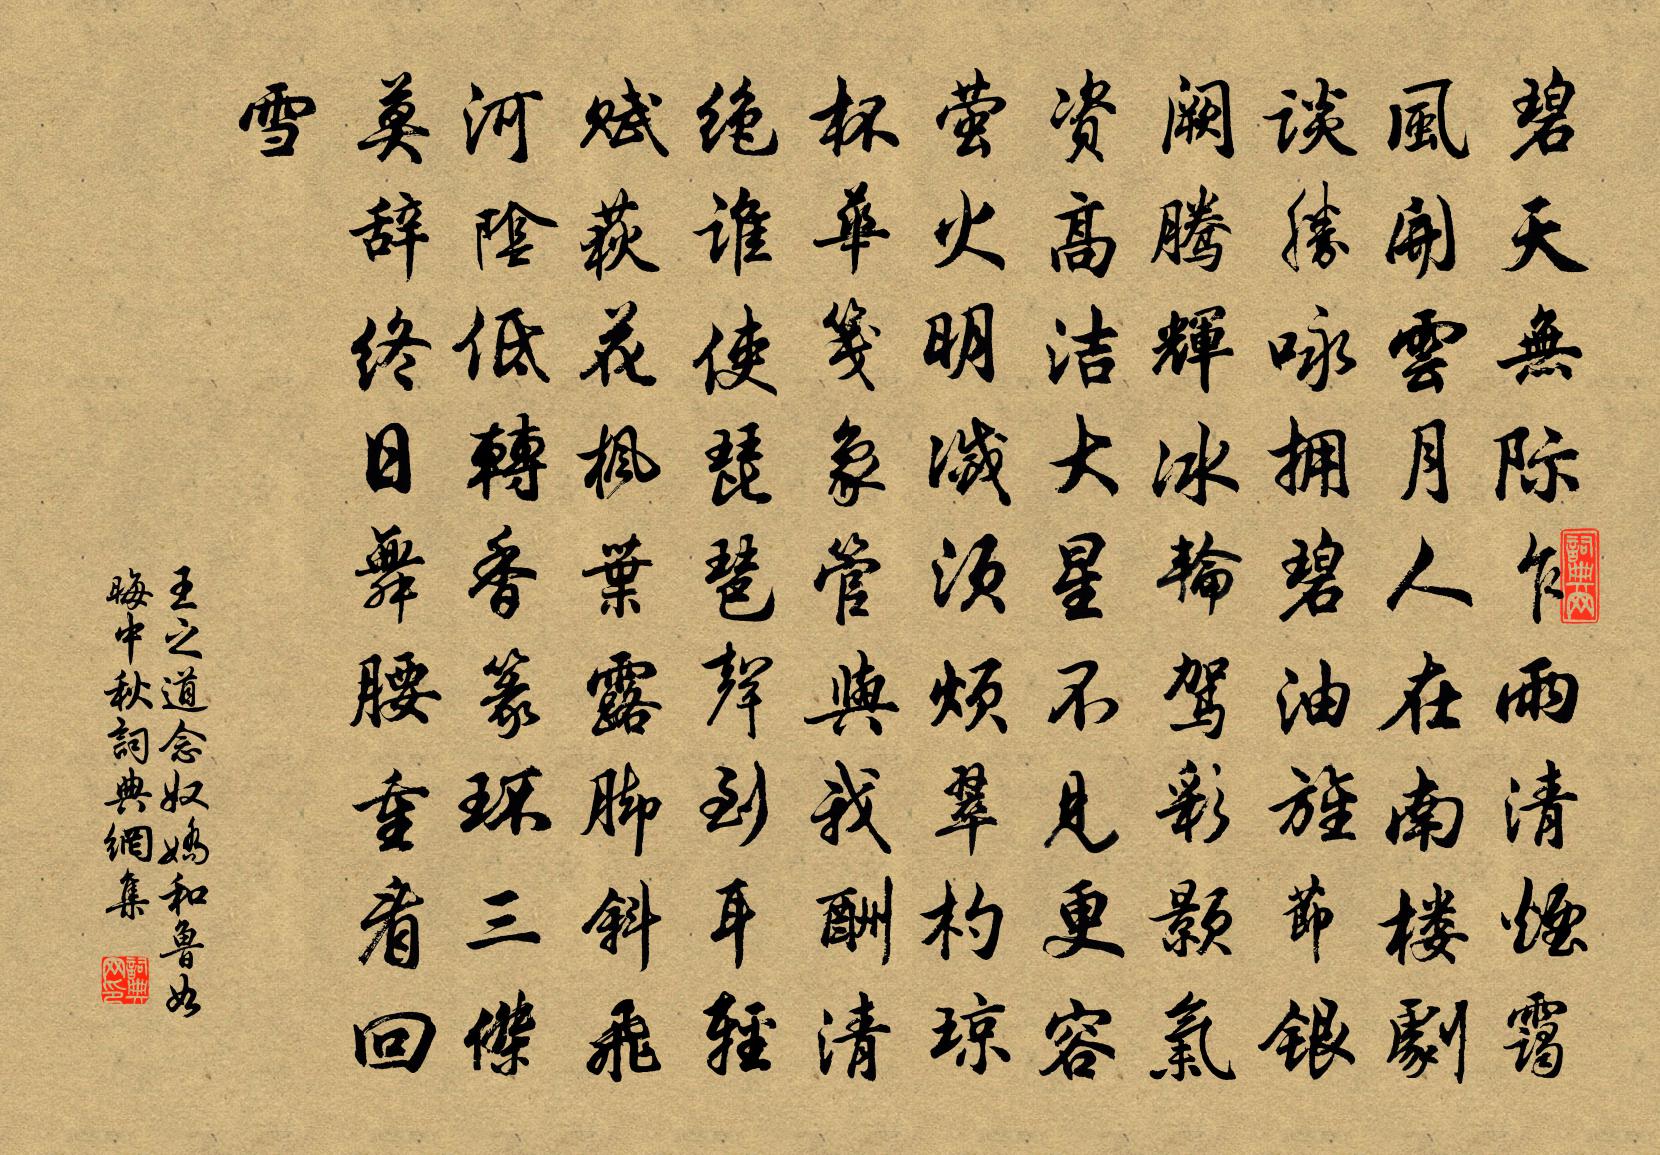 碧天無际乍雨清煙靄
風開雲月人在南楼劇
谈勝咏拥碧油旌節銀
阙腾輝冰輪驾彩颢氣
资高洁大星不見更容
萤火明滅须烦翠杓琼
杯華箋象管與我酬清
绝谁使琵琶聲到耳輕
赋荻花楓葉露脚斜飛
河陰低轉香篆环三傑
莫辞终日舞腰重看回
雪
王之道念奴嬌和鲁如
晦中秋詞典網集
詞典网
詞典网印